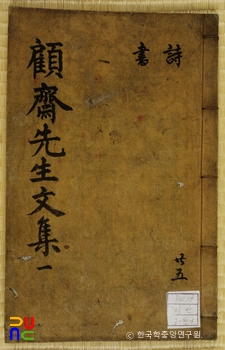 顧齋先生文集一
詩
書
共五
© 한국학중앙연구원